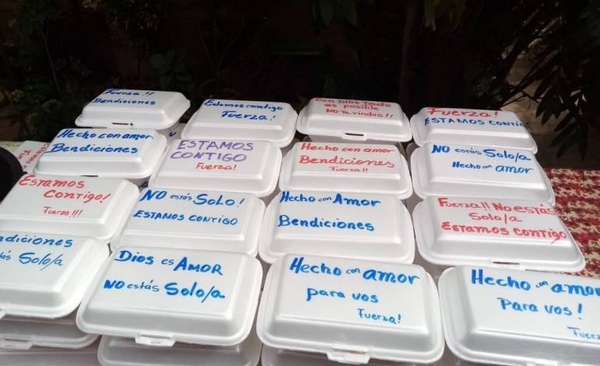 Fuerza!!
Bendiciones
Estamos contigo
Fuerza!
Con Dios todo
es posible
No te rindas!!
Fuerza!
ESTAMOS CONTIGO
Hecho con amor
Bendiciones
ESTAMOS
CONTIGO
Fuerza!
Hecho con amor
Bendiciones
Fuerza!!
NO estás Solo/a
Hecho con amor
ESTAMOS
CONTIGO!
Fuerza!!!
NO estás Solo!
ESTAMOS CONTIGO
Hecho con Amor
Bendiciones
Fuerza!! No estás
Solo/a
ESTAMOS CONTIGO
ndiciones
ás Solo/a
DIOS es AMOR
NO estás Solo/a
Hecho con amor
para vos
Fuerza!
Hecho con amor
Para vos!
Fuerz